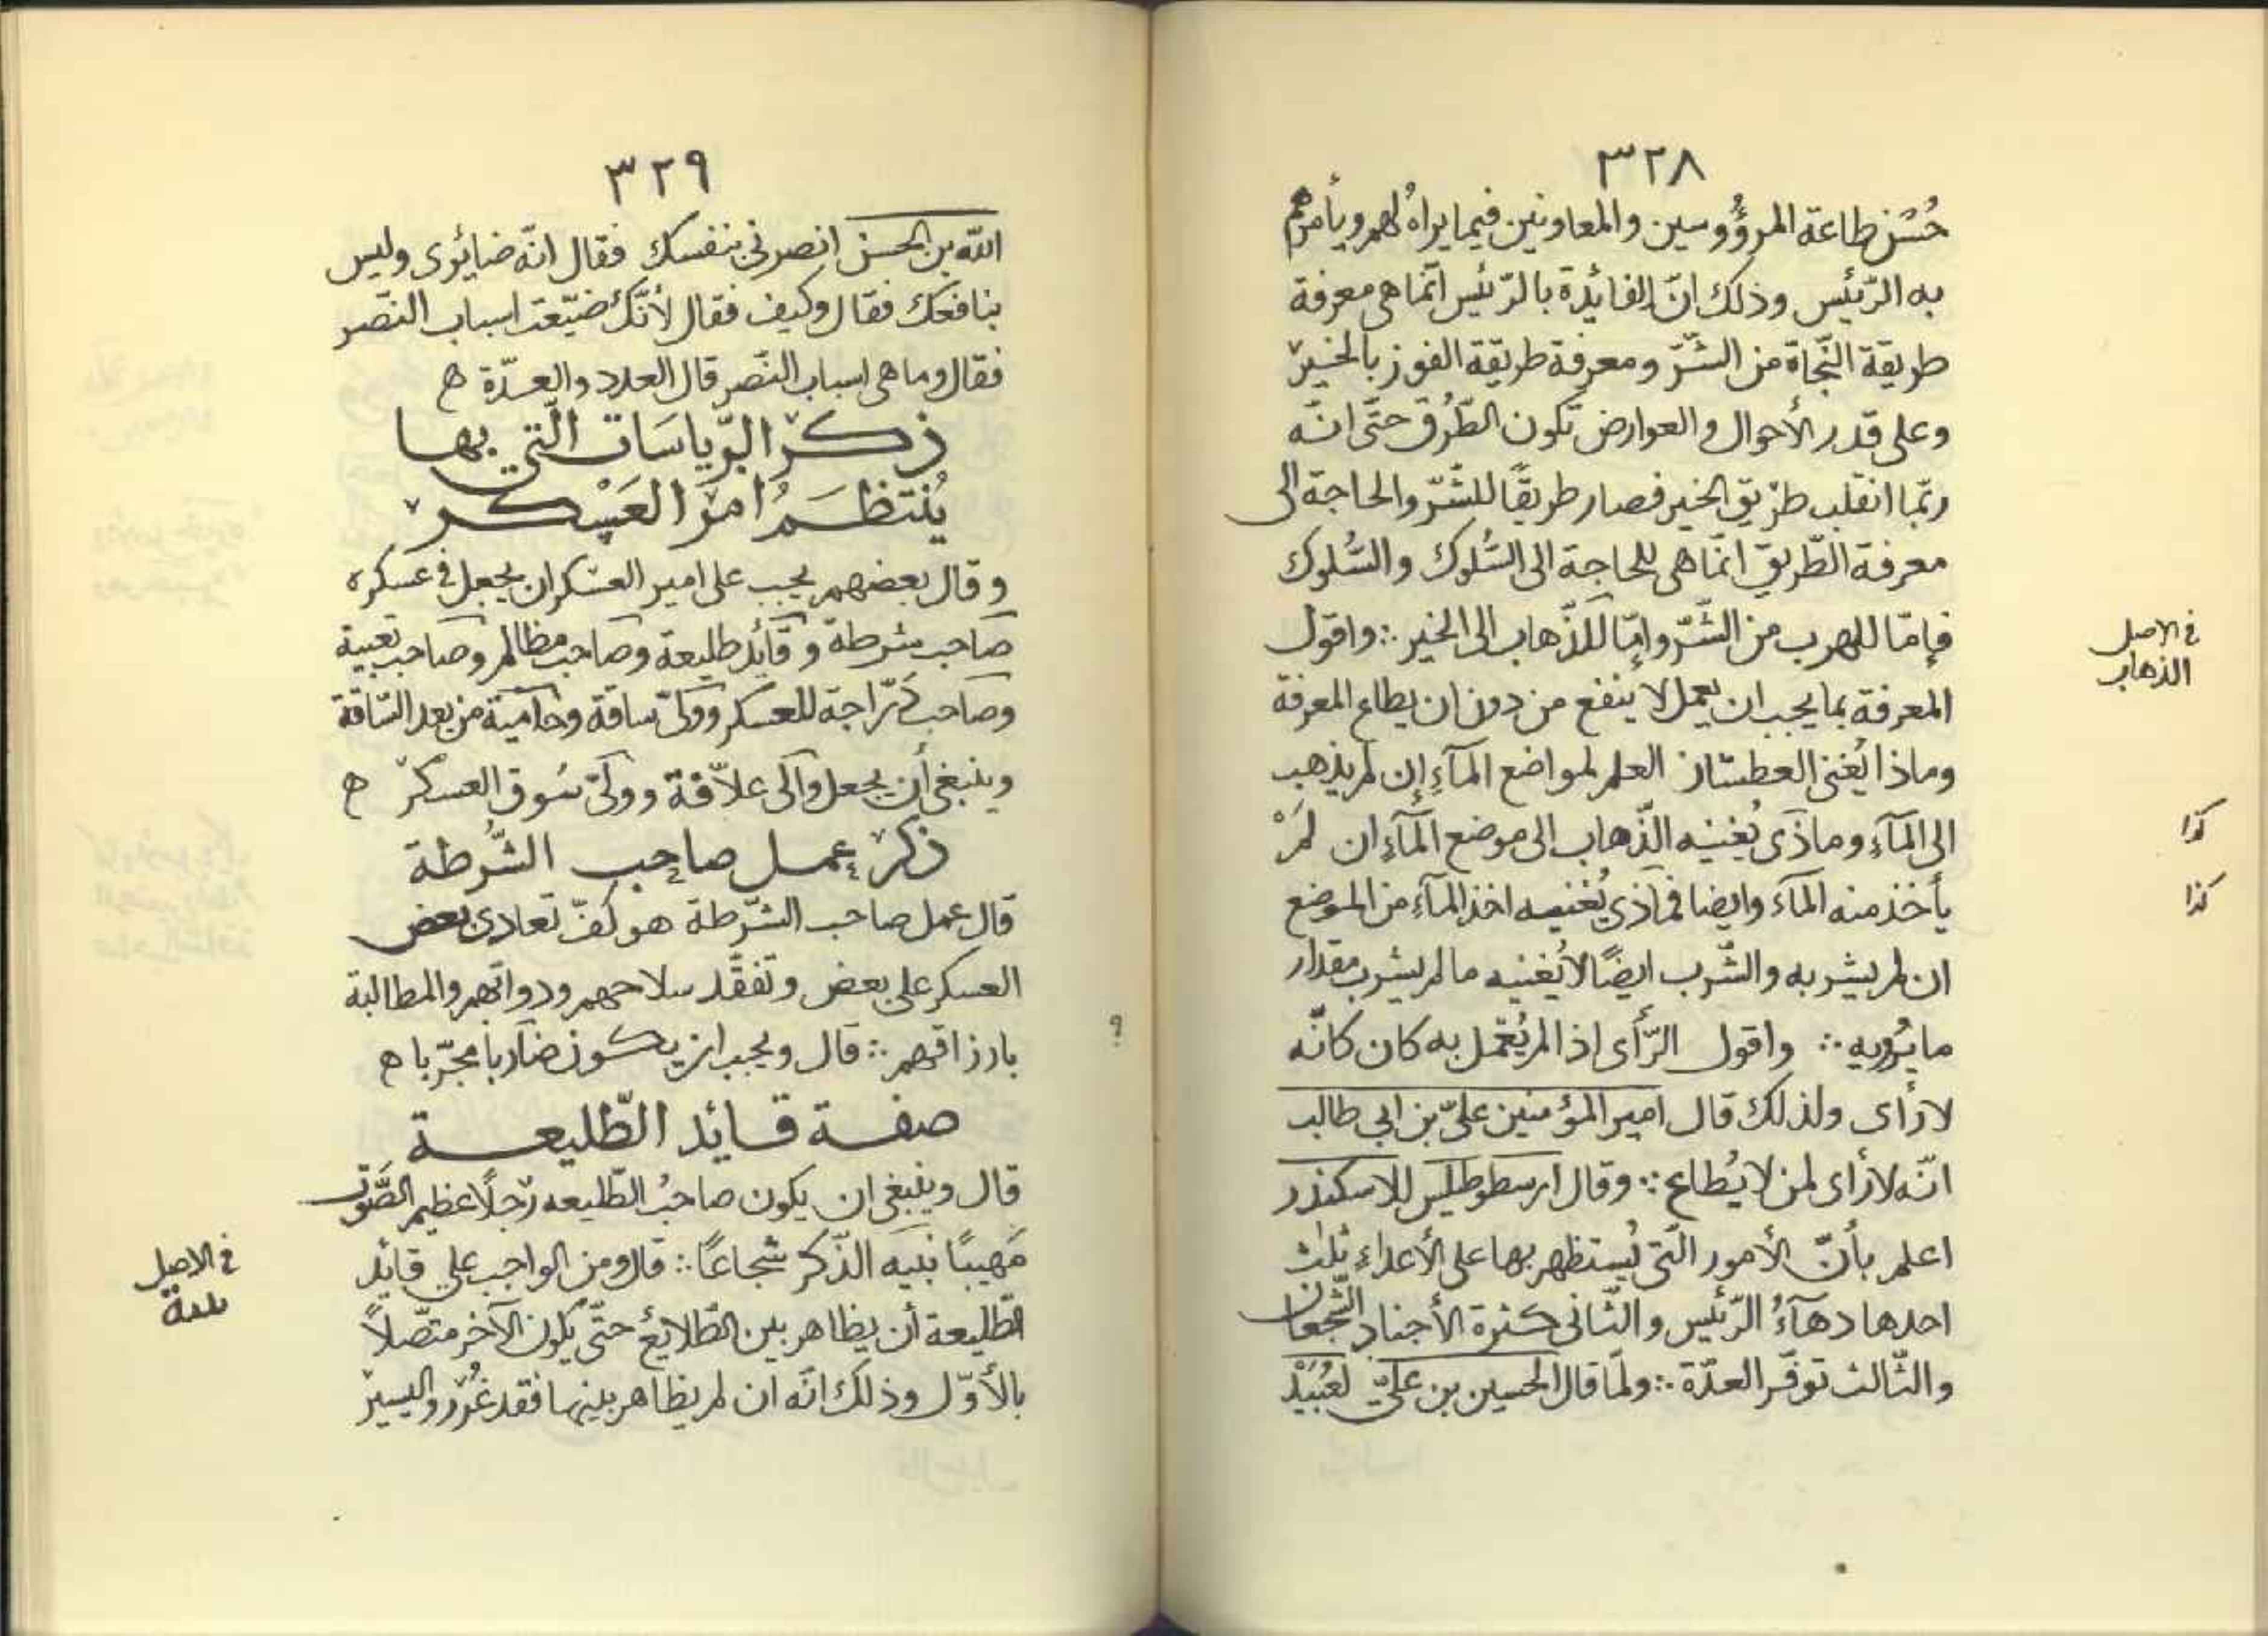 ٣٢٨
حُسْن طاعة المرؤُوسين والمعاونين فيما يراهُ لهم ويأمرهم
به الرّئيس وذلك انّ الفائدة بالرّئيس انّما هى معرفة
طريقة النّجاة من الشّرّ ومعرفة طريقة الفوز بالخير
وعلى قدر الأحوال والعوارض تكون الطّرُق حتّى انّه
ربّما انقلب طريق الخير فصار طريقًا للشّرّ والحاجة الى
معرفة الطّريق انّما هى للحاجة الى السُّلوك والسُّلوك
فإمّا للهرب من الشّرّ وإمّا للذّهاب الى الخير ∴ واقول
المعرفة بما يجب ان يعمل لا ينفع من دون ان يطاع المعرفة
وماذا يُغنى العطشان العلم لمواضع المآء إن لم يذهب
الى المآء وماذى يُغنيه الذّهاب الى موضع المآء ان لمْ
يأخذ منه المآء وايضا فماذى يُغنيه اخذ المآء من الموضع
ان لم يشربه والشّرب ايضًا لا يُغنيه ما لم يشرب مقدار
ما يُرويه ∴ واقول الرّأى اذا لم يُعْمل به كان كانّه
لا رأى ولذلك قال امير المؤمنين علىّ بن ابى طالب
انّه لا رأى لمن لا يُطاع ∴ وقال ارسطوطليس للاسكندر
اعلم بأنّ الأمور الّتى يُستظهر بها على الأعداء ثلث
احدها دهآءُ الرّئيس والثّانى كثرة الأجناد الشّجعان
والثّالث توفّر العدّة ∴ ولمّا قال الحسين بن علىّ لعُبَيْد
فى الاصل
الذهاب
كذا
كذا
؟
٣٢٩
اللّه بن الحسن انصرنى بنفسك فقال انّه ضائرى وليس
بنافعك فقال وكيف فقال لأنّك ضيّعت اسباب النّصر
فقال وما هى اسباب النّصر قال العدد والعدّة ه
ذكر الرّياسات الّتى بها
يُنتظم امر العَسْكر
وقال بعضهم يجب على امير العسكر ان يجعل فى عسكره
صاحب شرطة وقائد طليعة وصاحب مظالم وصاحب تعبية
وصاحب درّاجة للعسكر وولىّ ساقة وحامية من بعد السّاقة
وينبغى أن يجعل والى علاّفة وولىّ سُوق العسكر ه
ذكر عمل صاحب الشّرطة
قال عمل صاحب الشّرطة هو كفّ تعادى بعض
العسكر على بعض وتفقّد سلاحهم ودوابّهم والمطالبة
بارزاقهم ∴ قال ويجب ان يكون ضاربا مجرّبا ه
صفة قائد الطّليعة
قال وينبغى ان يكون صاحبُ الطّليعه رجلًا عظيم الصَّوت
مَهيبًا نبيه الذّكر شجاعًا ∴ قال ومن الواجب على قائد
الطّليعة أن يظاهر بين الطّلايع حتّى يكون الآخر متّصلاً
بالأوّل وذلك انّه ان لم يظاهر بينها فقد غُرّر واليسير
فى الاصل